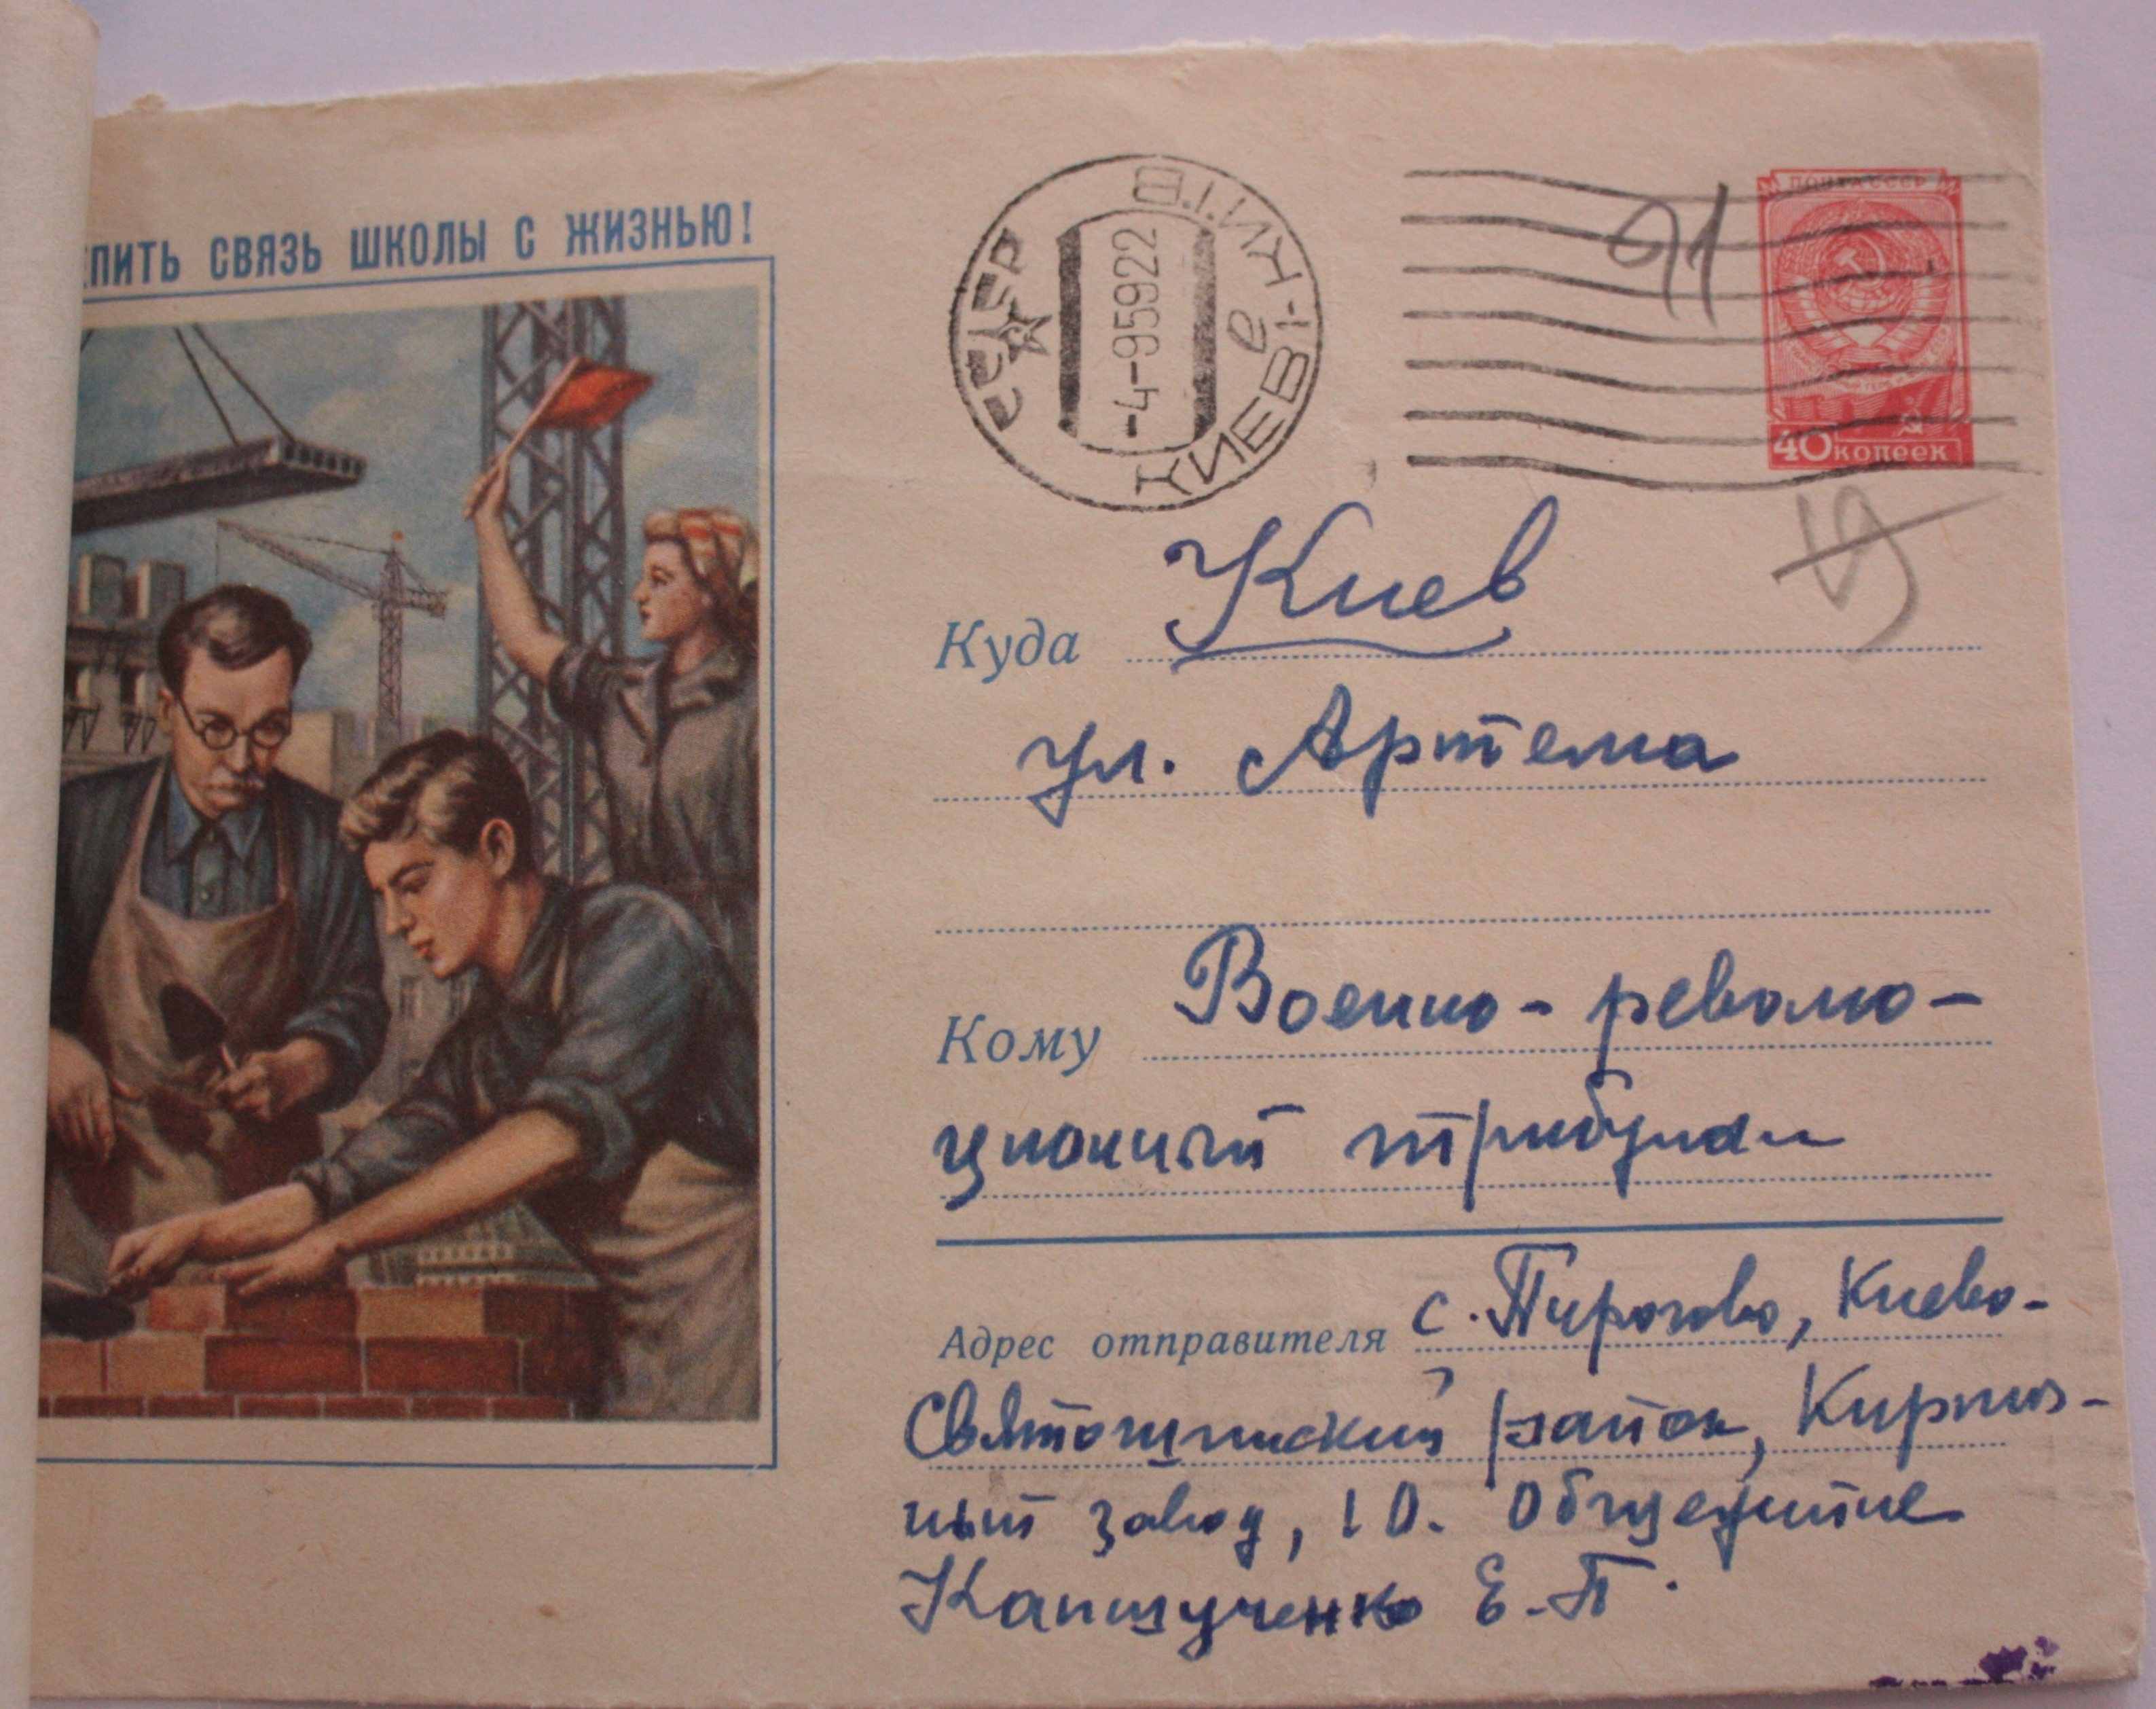 ПИТЬ СВЯЗЬ ШКОЛЫ С ЖИЗНЬЮ!
СССР
КИЕВ 1-КИЇВ
е
-4-95922
ПОЧТА СССР
40 КОПЕЕК
91
Куда Киев
ул. Артема
Кому Военно-револю-
ционный трибунал
Адрес отправителя с. Пирогово, Киево-
Святошинский район, Кирпич-
ный завод, 10. Общежитие
Капшученко Е.П.